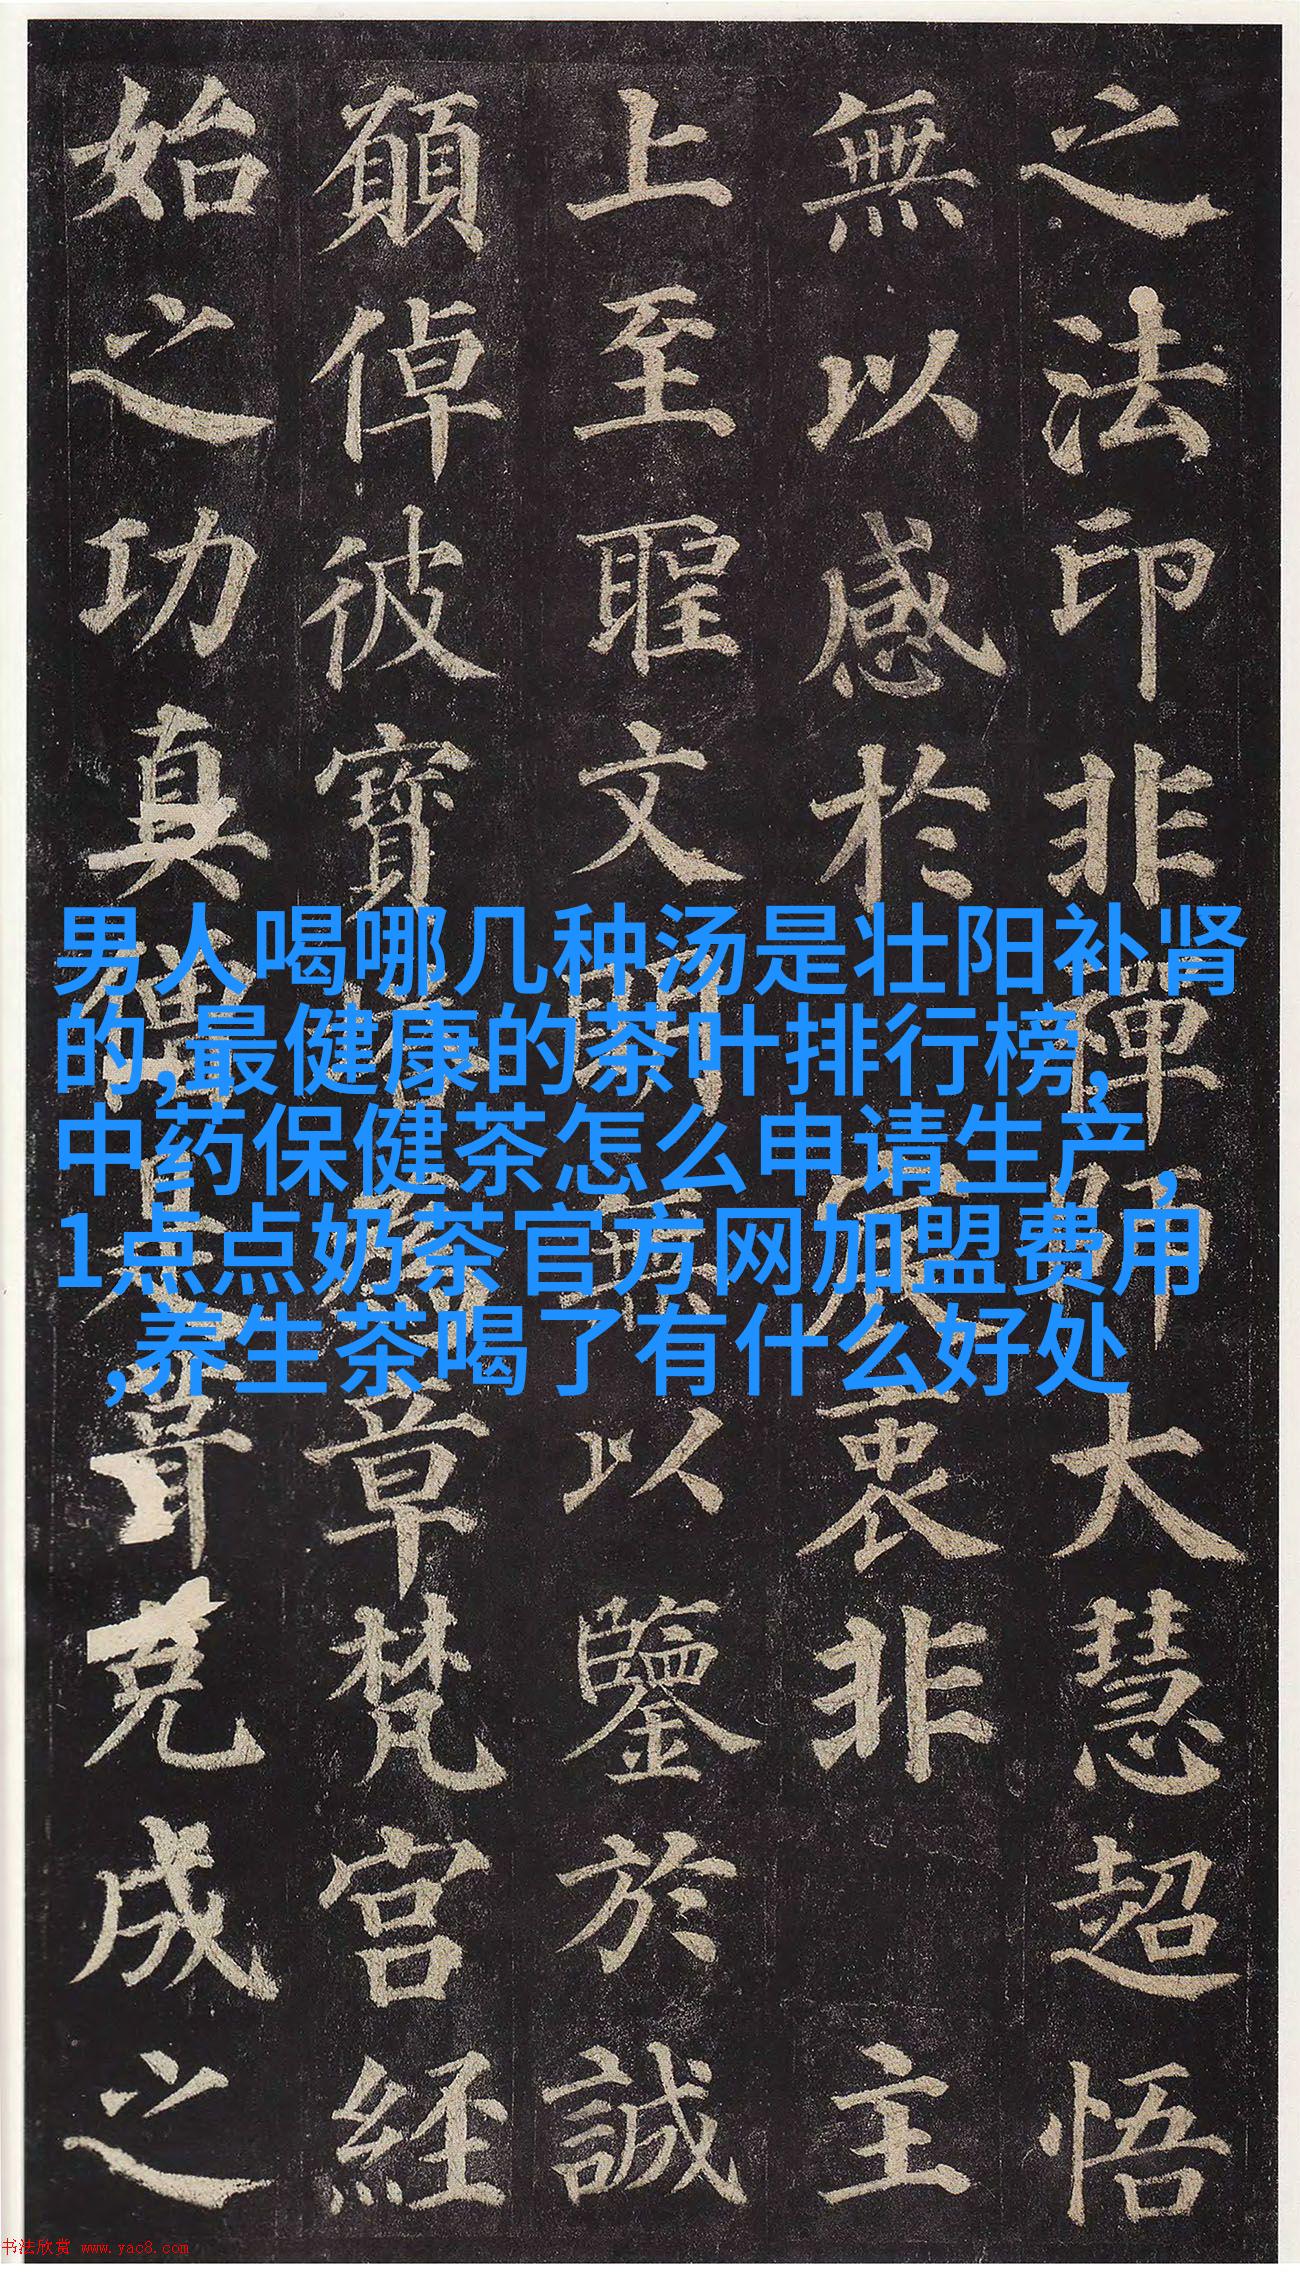 之法印非禪師大慧超悟
無以感於宸衷非主
上至聖文明無以鑒於誠
願倬彼寶塔為章梵宮經
始之功真僧是葺克成之
男人喝哪几种汤是壮阳补肾
的,最健康的茶叶排行榜,
中药保健茶怎么申请生产,
1点点奶茶官方网加盟费用
,养生茶喝了有什么好处
书法欣赏 www.yac8.com